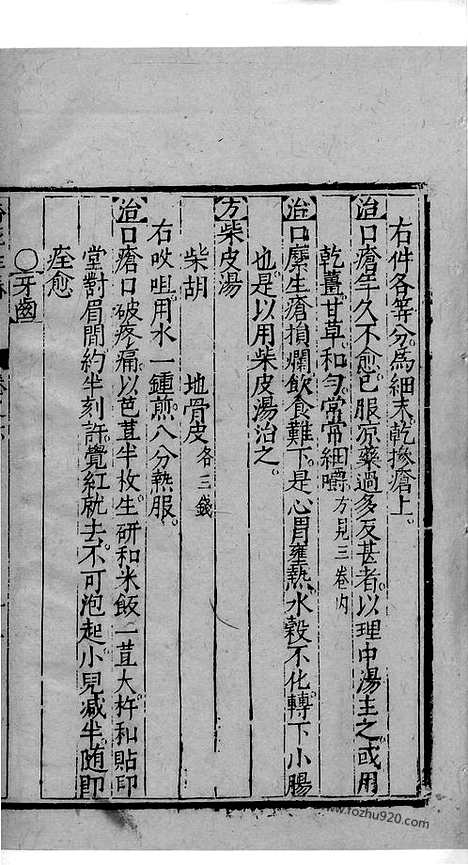 右件各等分。爲細末乾摻瘡上。
治口瘡年久不愈。已服凉藥過多反甚者。以理中湯主之。或用
乾薑。甘草。和勻常常細嚼。方見三卷內
治口糜生瘡損爛飲食難下。是心胃壅熱水穀不化轉下小腸
也。是以用柴皮湯治之。
方柴皮湯
柴胡 地骨皮各三錢
右㕮咀。用水一鍾煎八分熱服。
治口瘡口破疼痛。以芭荳半枚。生研和米飯一荳大。杵和貼印
堂對眉間約半刻許。覺紅就去。不可泡起。小兒减半。随即
痊愈
○牙齒
www.tozhu920.com